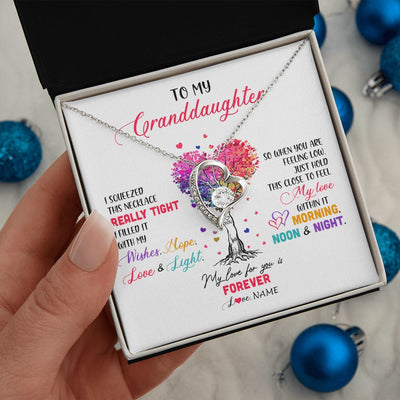 TO MY
Granddaughter
I SQUEEZED
THIS NECKLACE
REALLY TIGHT
I FILLED IT
WITH MY
Wishes, Hope,
Love & Light.
SO WHEN YOU ARE
FEELING LOW,
JUST HOLD
THIS CLOSE TO FEEL
My love
WITHIN IT
MORNING,
NOON & NIGHT.
My love for you is
FOREVER
Love, NAME